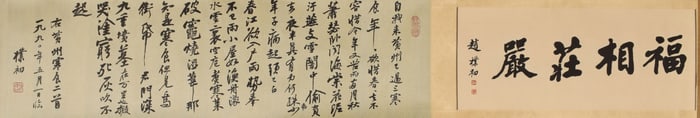 福相莊嚴
趙樸初
自我來黃州已過三寒
食年年欲惜春春去不
容惜今年又苦雨兩月秋
蕭瑟卧聞海棠花泥
汙燕支雪闇中偷負
去夜半真有力何殊少
年子病起頭已白
春江欲入戶雨勢來
不已雨小屋如漁舟濛濛
水雲裏空庖煮寒菜
破竈燒溼葦那
知是寒食但見烏
銜帋君門深
九重墳墓在万里也擬
哭塗窮死灰吹不
起
右黃州寒食二首
一九八〇年五月一日臨
樸初